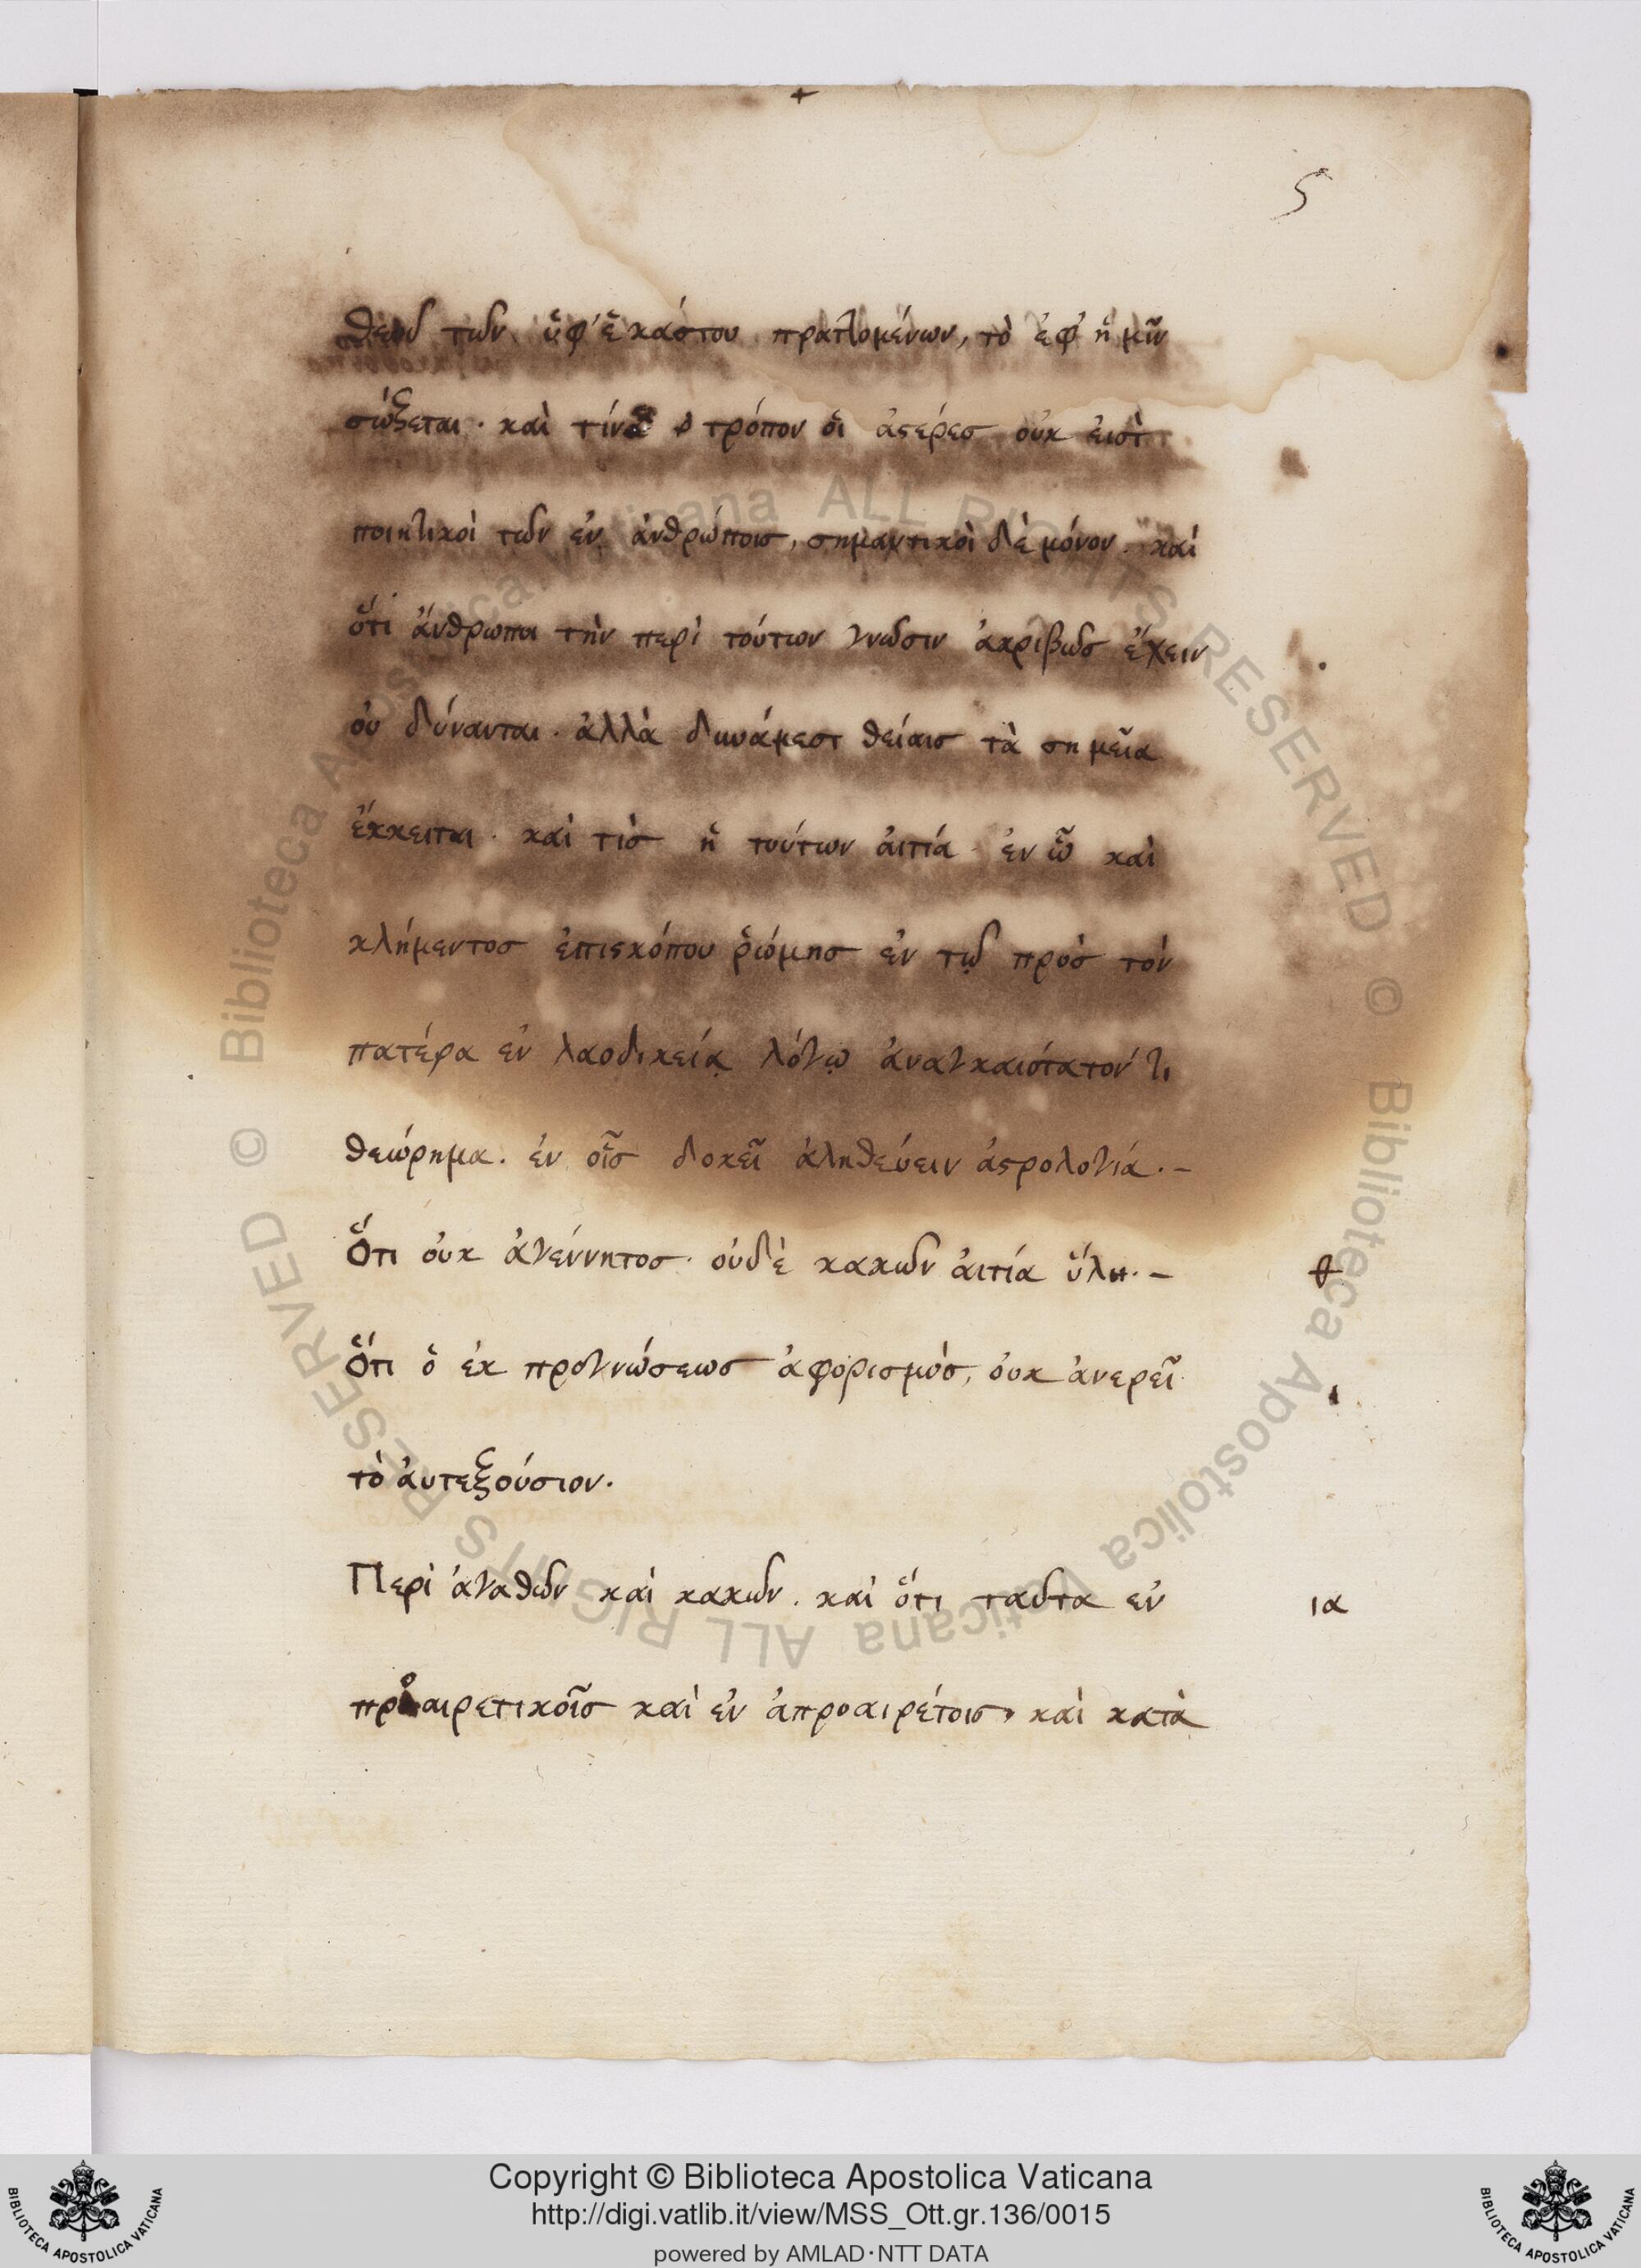 +
5
θεοῦ τῶν ὑφ' ἑκάστου πραττομένων, τὸ ἐφ' ἡμῖν
σώζεται. καὶ τίνα τρόπον ὁι ἀστέρεσ ὀυκ ἐισὶ
ποιητικοὶ τῶν ἐν ἀνθρώποισ, σημαντικοὶ δὲ μόνον. καὶ
ὅτι ἄνθρωποι τὴν περὶ τούτων γνῶσιν ἀκριβῶσ ἔχειν
ὀυ δύνανται. ἀλλὰ δυνάμεσι θείαισ τὰ σημεῖα
ἔκκειται. καὶ τίσ ἡ τούτων ἀιτία. ἐν ᾧ καὶ
κλήμεντοσ ἐπισκόπου ῥώμησ ἐν τῷ πρὸσ τὸν
πατέρα ἐν λαοδικείᾳ λόγῳ ἀναγκαιότατόν τι
θεώρημα. ἐν οἷσ δοκεῖ ἀληθεύειν ἀστρολογία.–
Ὅτι ὀυκ ἀγέννητοσ. ὀυδὲ κακῶν ἀιτία ὕλη.–
θ
Ὅτι ὁ ἐκ προγνώσεωσ ἀφορισμὸσ, ὀυκ ἀνερεῖ
ι
τὸ ἀυτεξούσιον.
Περὶ ἀγαθῶν καὶ κακῶν. καὶ ὅτι ταῦτα ἐν
ια
προαιρετικοῖσ καὶ ἐν ἀπροαιρέτοισ, καὶ κατὰ
© Biblioteca Apostolica Vaticana ALL RIGHTS RESERVED © Biblioteca Apostolica Vaticana ALL RIGHTS RESERVED
BIBLIOTECA APOSTOLICA VATICANA
Copyright © Biblioteca Apostolica Vaticana
http://digi.vatlib.it/view/MSS_Ott.gr.136/0015
powered by AMLAD·NTT DATA
BIBLIOTECA APOSTOLICA VATICANA